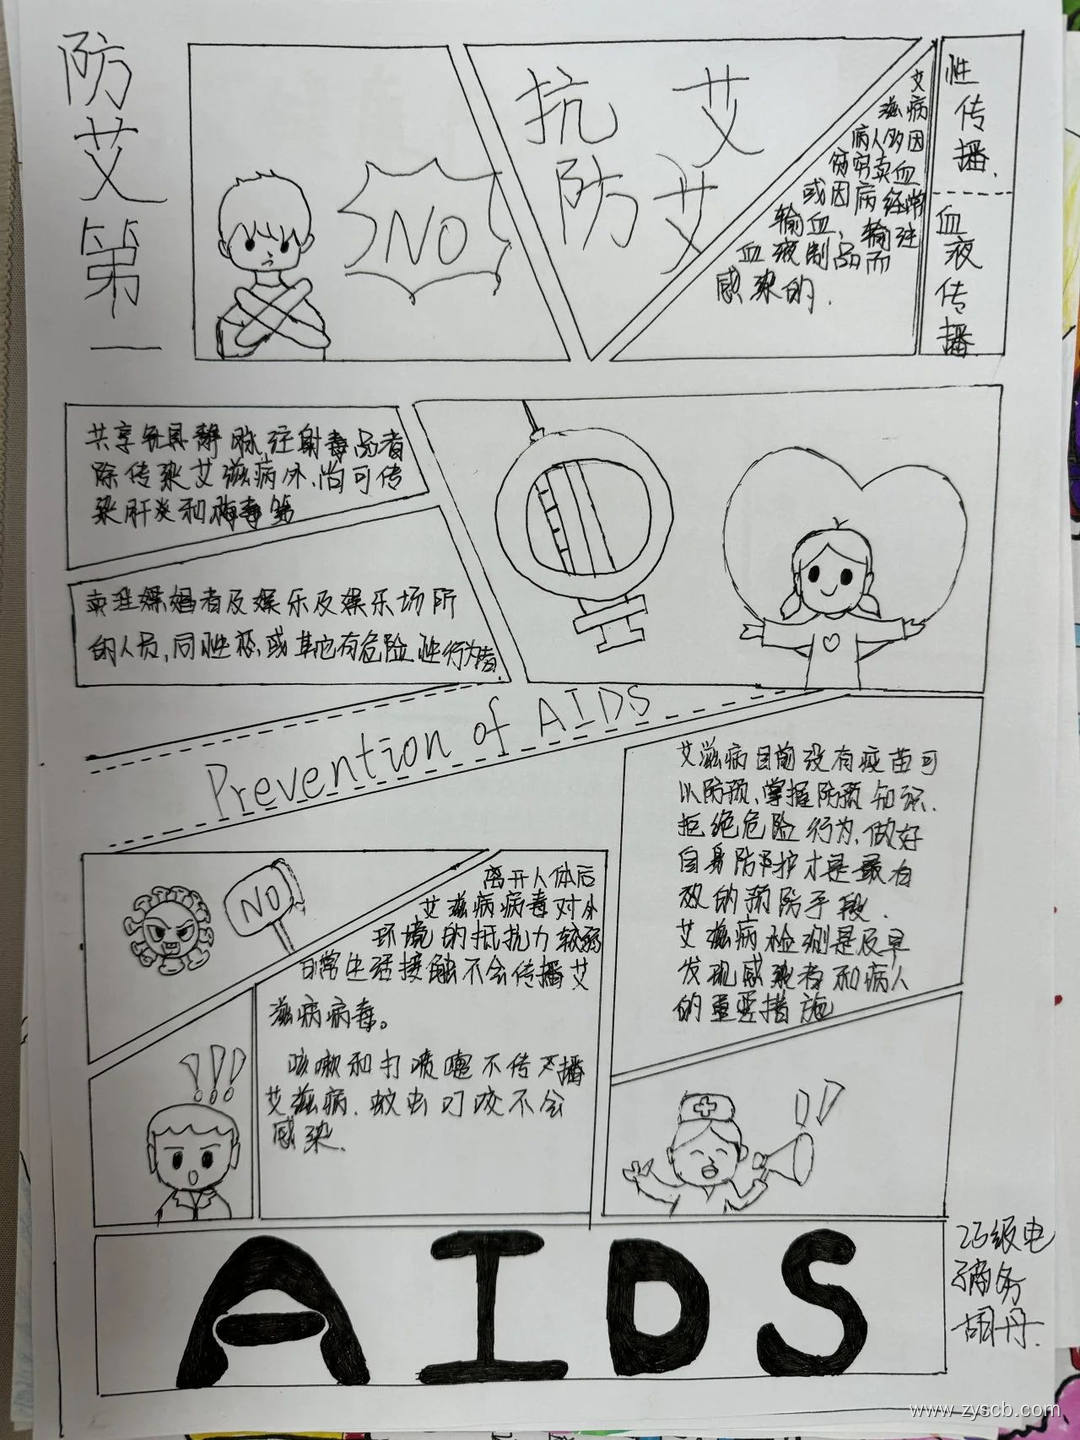 防艾第一
NO
抗艾
防艾
艾
滋病
病人多因
贫穷卖血
或因病经常
输血、输注
血液制品而
感染的.
性传播.
血液传播
共享针具静脉注射毒品者
除传染艾滋病外、尚可传
染肝炎和梅毒等
卖淫嫖娼者及娱乐及娱乐场所
的人员,同性恋或其它有危险性行为者
Prevention of AIDS
艾滋病目前没有疫苗可
以防预、掌握防预知识.
拒绝危险行为、做好
自身防护才是最有
效的预防手段.
艾滋病检测是及早
发现感染者和病人
的重要措施
NO
离开人体后
艾滋病病毒对外
环境的抵抗力较弱
日常生活接触不会传播艾
滋病病毒。
咳嗽和打喷嚏不传播
艾滋病.蚊虫叮咬不会
感染.
!!!
!!
AIDS
23级电
子商务
胡丹.
www.zyscb.com